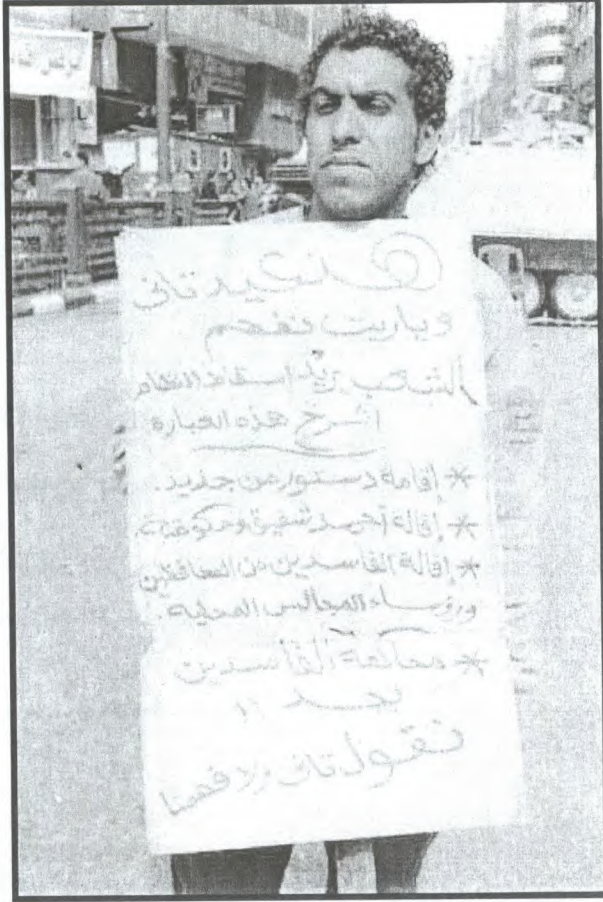 هنعيد تانى
وياريت نفهم
الشعب يريد إسقاط النظام
اشرح هذه العبارة
* إقامة دستور من جديد.
* إقالة أحمد شفيق وحكومته.
* إقالة الفاسدين من المحافظين
ورؤساء المجالس المحلية.
* محاكمة الفاسدين
بعد
نقول تانى ولا فهمنا